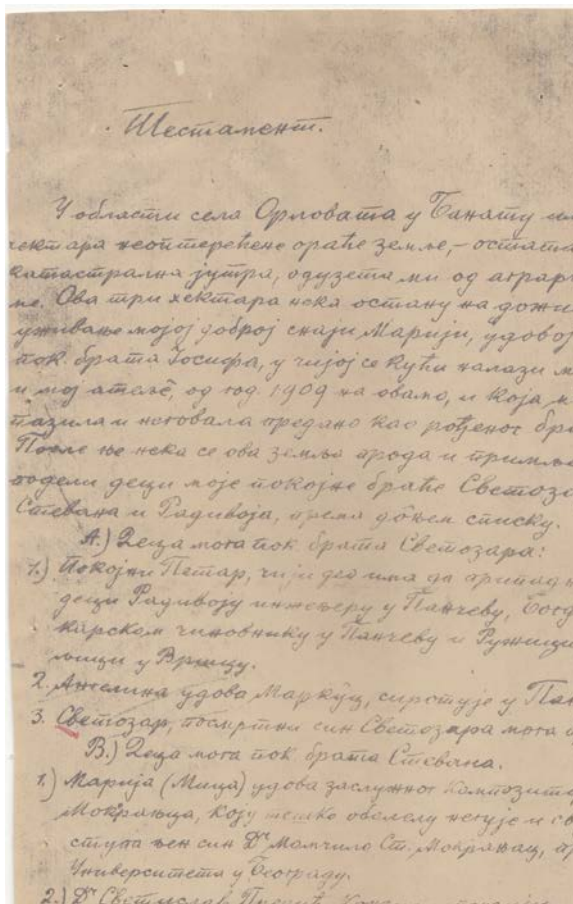 Тестамент.
У области села Орловата у Банату им
хектара неоптерећене ораће земље, – остата
катастрална јутра, одузета ми од аграр
ме. Ова три хектара нека остану на дожи
уживање мојој доброј снаји Марији, удовој
пок. брата Јосифа, у чијој се кући налази м
и мој атеље, од год. 1909 на овамо, и која м
пазила и неговала предано као рођеног бра
После ње нека се ова земља прода и примље
подели деци моје покојне браће Светоза
Стевана и Радивоја, према доњем списку.
А.) Деца мога пок. брата Светозара:
1.) Покојни Петар, чији део има да припадн
деци Радивоју инжењеру у Панчеву,
чиновнику у Панчеву и Ружици
у Вршцу.
2. Ангелина удова Маркуц, сироту­је у Пан
3. Светозар, посмртни син Светозара мога
В.) Деца мога пок. брата Стевана.
1.) Марија (Мица) удова заслужног композито
Мокрањца, коју тешко оболелу негује и
њен син Др Момчило Ст. Мокрањац, пр
Универзитета у Београду.
2.) Др